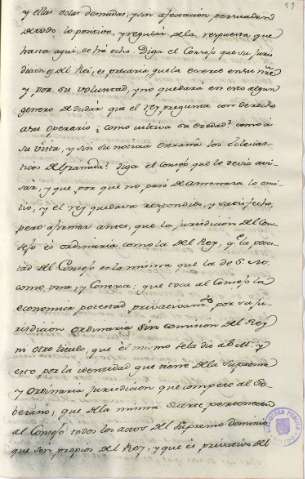 y ellas estas demandas, y sin afectacion persuaden
acerado lo pocitivo, y reguler de la respuesta que
hasta aquí se ha oido. Diga el Consejo que su juris
diccion es del Rei, es ordinaria, que la exerce en su nre
y por su voluntad, y no quedará en esto algun
genero de duda: que el rey pregunta con derecho
a su operario ¿como cultiva su heredad? como á
su vista, y sin su noticia entraron los Eclesias
ticos de Granada? diga el Consejo que le devia avi
sar, y que por que no paró de Amenara lo omi
tio, y el rey quedara respondido, y satisfecho,
pero afirmar antes, que la jurisdiccion del Con
sejo es ordinaria como la del Rey, y la potes
tad del Consejo es la misma que la de S. M.
como una, y Conexa: que toca al Consejo la
economica potestad privativamte por su ju
risdiccion ordinaria sin comision del Rey
ni otro titulo, que el mismo de la dio
esto por la identidad que tiene de la Suprema
y Ordinaria jurisdiccion que compete al So
berano, que de la misma suerte pertenecen
al Consejo todos los actos del Supremo dominio
que son propios del Rey, y que es privativo del